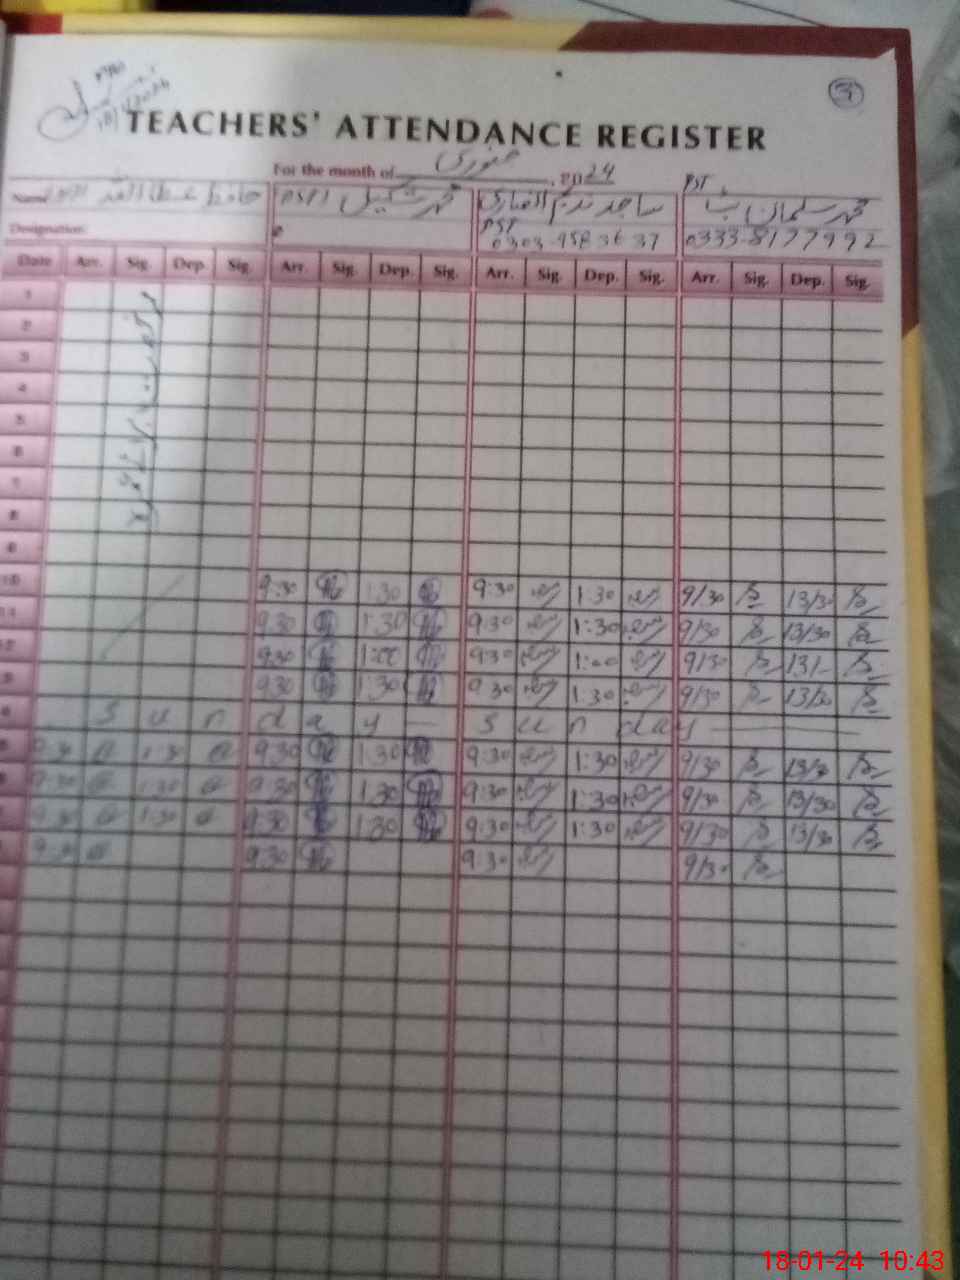 3
18/1/2024
TEACHERS' ATTENDANCE REGISTER
For the month of جنوری, 2024
Name حافظ عطا اللہ
PST محمد شکیل
ساجد ندیم انصاری
PST
محمد سلمان
PST
Designation:
0303-9583637
0333-8177992
Date Arr. Sig. Dep. Sig. Arr. Sig. Dep. Sig. Arr. Sig. Dep. Sig. Arr. Sig. Dep. Sig.
1
2
3
4
5
6
7
8
9
10 9:30 1:30 9:30 1:30 9/30 13/30
11 9:30 1:30 9:30 1:30 9/30 13/30
12 9:30 1:00 9:30 1:00 9/30 13/-
9:30 1:30 9:30 1:30 9/30 13/30
Sunday — Sunday —
9:30 1:30 9:30 1:30 9:30 1:30 9/30 13/30
9:30 1:30 9:30 1:30 9:30 1:30 9/30 13/30
9:30 1:30 9:30 1:30 9:30 1:30 9/30 13/30
9:30 9:30 9:30 9/30
18-01-24 10:43